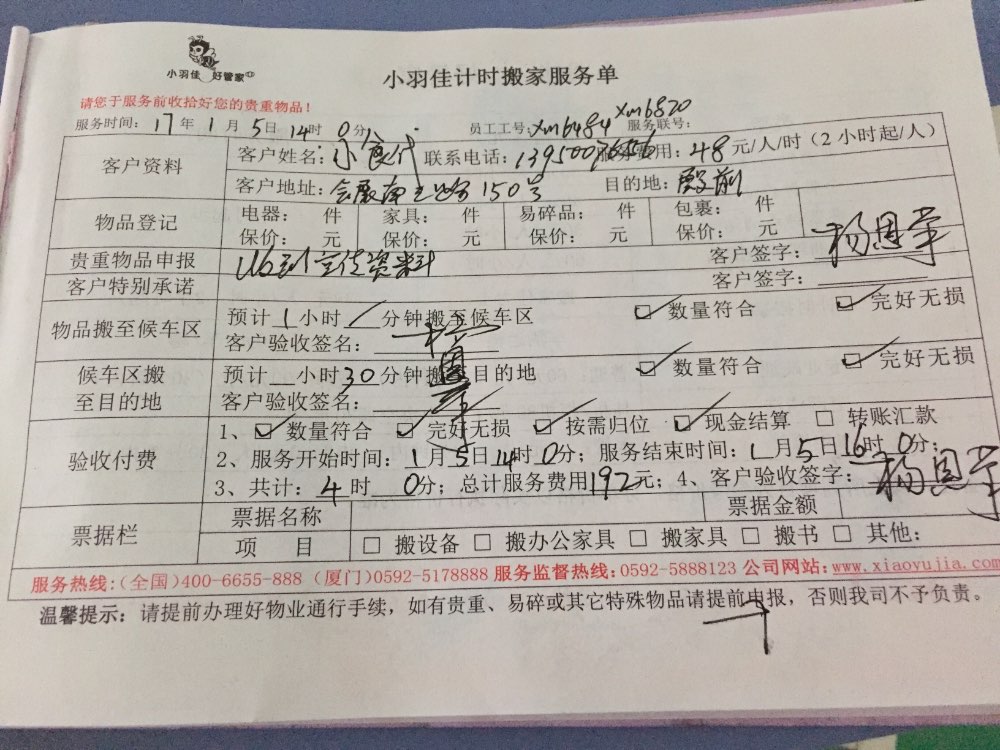 小羽佳 好管家
小羽佳计时搬家服务单
请您于服务前收拾好您的贵重物品！
服务时间：17年1月5日14时0分 员工工号：xm6484 xm6820 服务联号：
客户资料 客户姓名： 联系电话：13950 服务费用：48元/人/时（2小时起/人）
客户地址：会展南 150号 目的地：殿前
物品登记 电器： 件 家具： 件 易碎品： 件 包裹： 件
保价： 元 保价： 元 保价： 元 保价： 元
贵重物品申报 宣传资料 客户签字：杨恩荣
客户特别承诺 客户签字：
物品搬至候车区 预计1小时/分钟搬至候车区 ☑数量符合 ☑完好无损
客户验收签名：杨恩荣
候车区搬至目的地 预计 小时30分钟搬至目的地 ☑数量符合 ☑完好无损
客户验收签名：
验收付费 1、☑数量符合 ☑完好无损 ☑按需归位 ☑现金结算 □转账汇款
2、服务开始时间：1月5日14时0分；服务结束时间：1月5日16时0分；
3、共计：4时0分；总计服务费用192元；4、客户验收签字：杨恩荣
票据栏 票据名称 票据金额
项 目 □搬设备 □搬办公家具 □搬家具 □搬书 □其他：
服务热线：（全国）400-6655-888（厦门）0592-5178888 服务监督热线：0592-5888123 公司网站：www.xiaoyujia.com
温馨提示：请提前办理好物业通行手续，如有贵重、易碎或其它特殊物品请提前申报，否则我司不予负责。